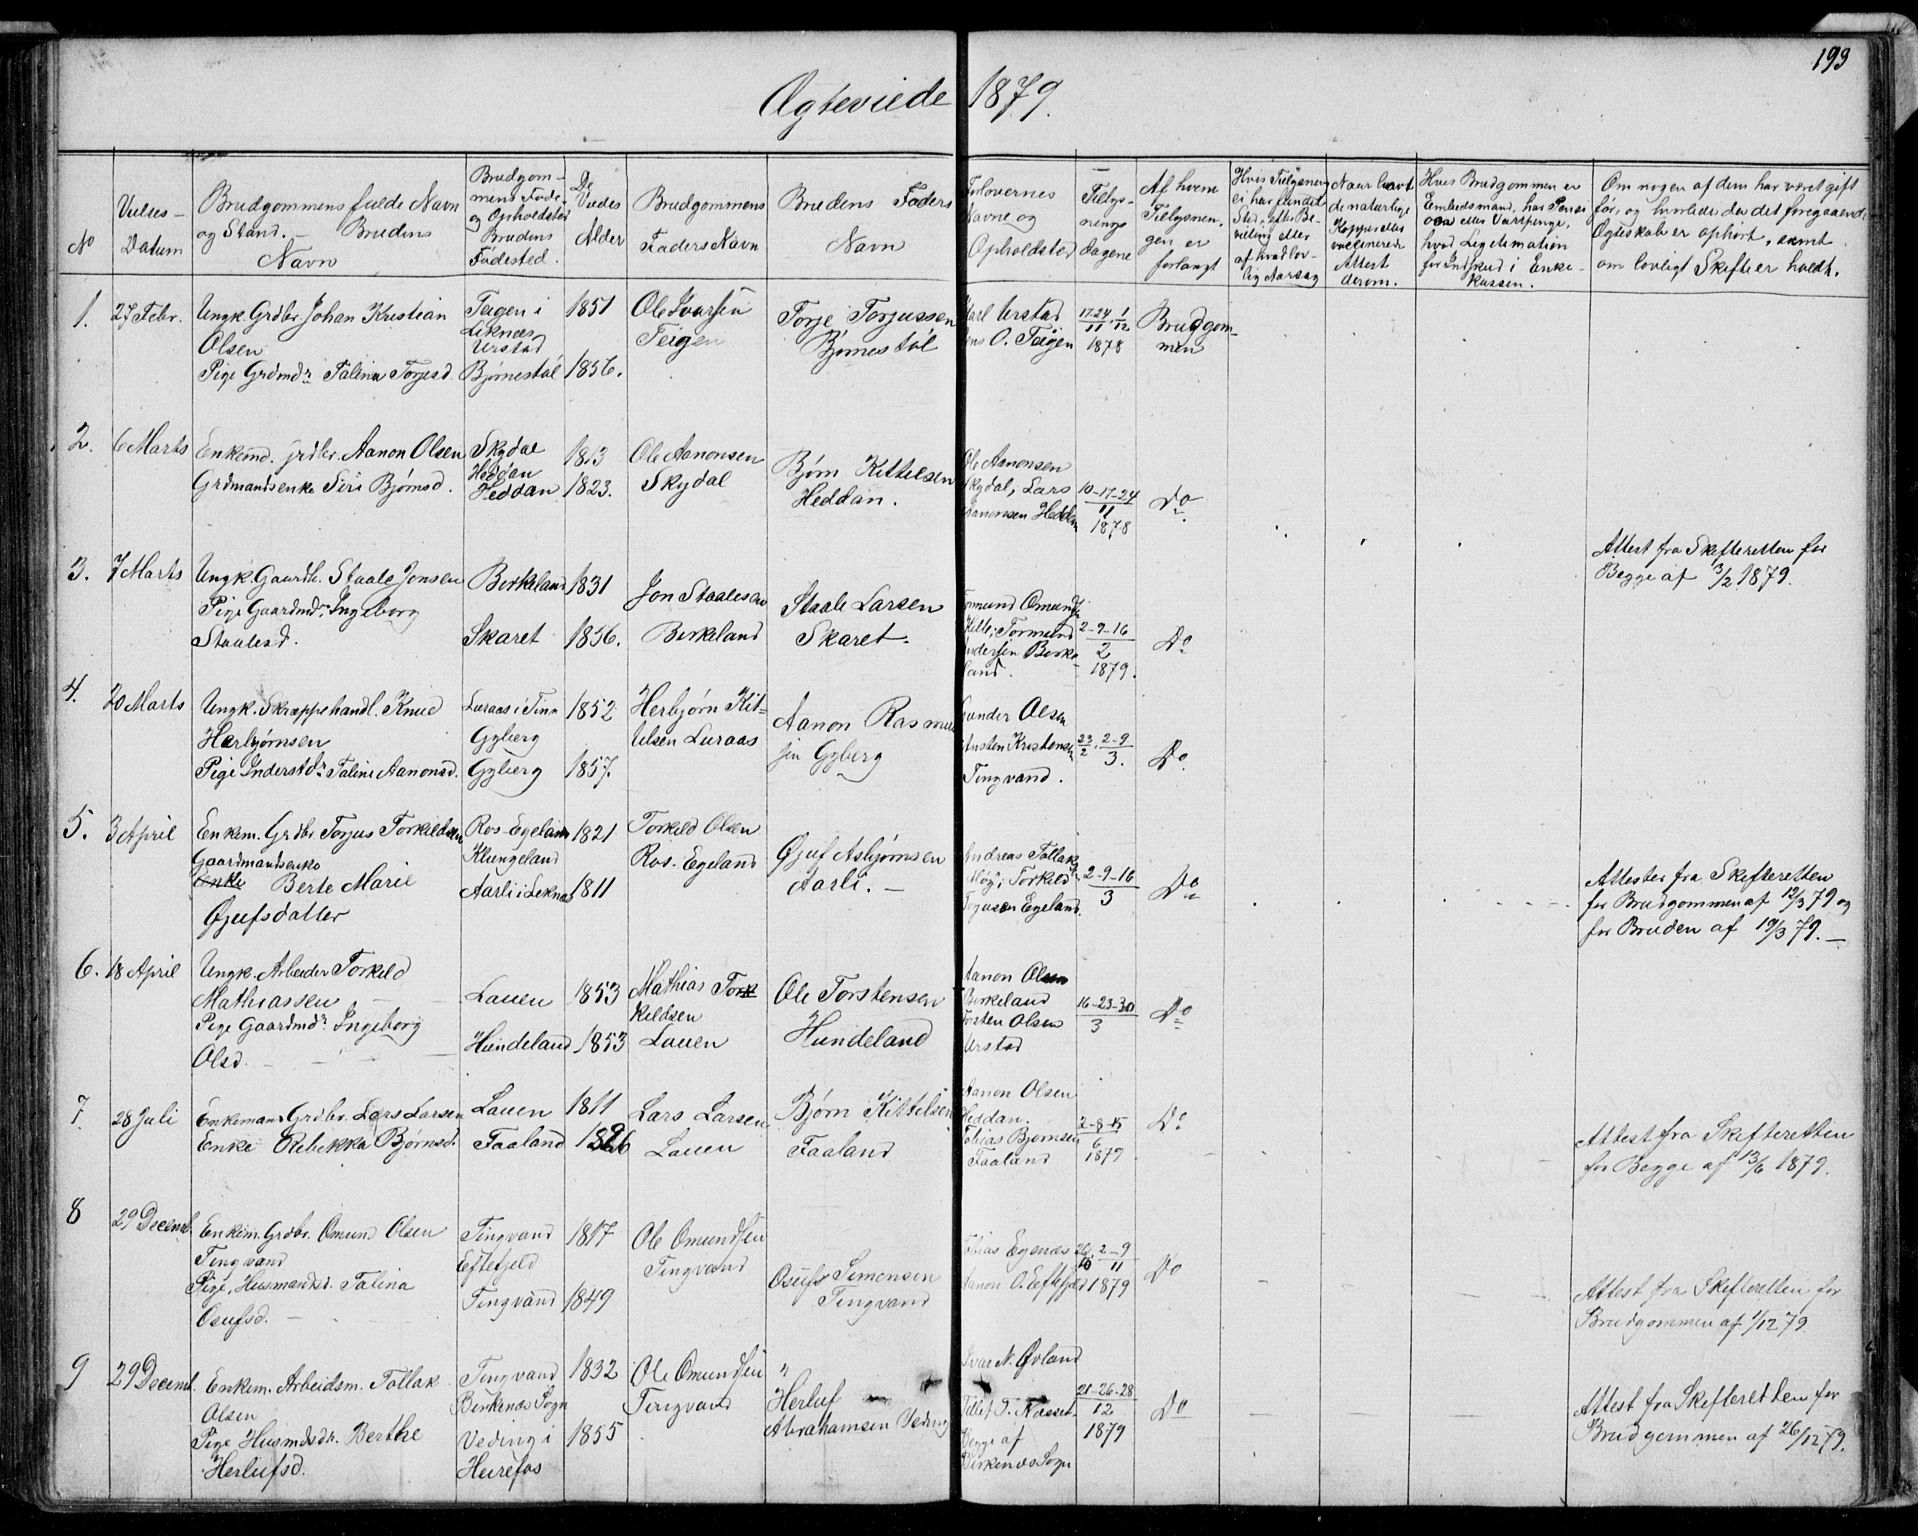 193
Ægteviede 1879.
No
Vielses-
Datum
Brudgommens fulde Navn
og Stand. — Brudens
Navn
Brudgom-
mens Føde-
og Opholdsted
Brudens
Fødested.
De
Viedes
Alder
Brudgommens
Faders Navn
Brudens Faders
Navn
Forlovernes
Navne og
Opholdsted
Tillys-
nings
dagene
Af hvem
Tillysnin-
gen er
forlangt
Hvis Tillysning
ei har fundet
Sted, efter Be-
villing eller
af hvad lov-
lig Aarsag
Naar havt
de naturlige
Kopper eller
vaccinerede
Attest
derom.
Hvis Brudgommen er
Embedsmand, har Pensi
on eller Vartpenge,
hvad Legitimation
for Indskud i Enke-
kassen.
Om nogen af dem har været gift
før, og hvorledes da det foregaaende
Ægteskab er ophørt, samt
om lovligt Skifte er holdt.
1. 27 Febr. Ungk. Grdbr. Johan Kristian
Olsen
Pige Grdmdr. Talina Torjesd.
Teigen i
Leknæs
Urstad
Bjørnestøl
1851
1856.
Ole Ivarsen
Teigen
Torje Torjussen
Bjørnestøl
Karl Urstad
Jens O. Teigen
17-24/11 1/12
1878
Brudgom-
men
2. 6 Marts Enkemd. grdbr. Aanon Olsen
Grdmandsenke Siri Bjørnsd.
Skydal
Heddan
Heddan
1813
1823.
Ole Aanonsen
Skydal
Bjørn Kittelsen
Heddan.
Ole Aanonsen
Skydal, Lars
Aanonsen Heddan
10-17-24
11
1878
Do
Attest fra Skifteretten for
Begge af 3/2 1879.
3. 7 Marts Ungk. Gaardb. Staale Jonsen
Pige Gaardmdr. Ingeborg
Staalesd.
Birkeland
Skaret
1831
1856.
Jon Staalesen
Birkeland
Staale Larsen
Skaret.
Tormund Omunds
Hille; Tormund
Andersen Birke
land.
2-9-16
2
1879.
Do
4. 20 Marts Ungk. Skræppehandl. Knud
Herbjørnsen
Pige Inderstdr. Taline Aanonsd.
Luraas i Tinn
Gyberg
Gyberg
1852
1857.
Herbjørn Kit-
telsen Luraas
Aanon Rasmus
sen Gyberg
Gunder Olsen
Austen Kristensen
Tingvand.
23/2, 2-9/3.
Do
5. 3 April Enkem. Grdbr Torjus Torkildsen
Gaardmandsenke
Enke Berte Marie
Gjufsdatter
Ros-Egeland
Klungeland
Aarli i Leknæs
1821
1811
Torkild Olsen
Ros-Egeland
Gjuf Asbjørnsen
Aarli. —
Andreas Tollak
Torkild
Torjusen Egeland.
2-9-16
3
Do
Attester fra Skifteretten
for Brudgommen af 12/3 79 og
for Bruden af 19/3 79. —
6. 18 April Ungk. Arbeider Torkild
Mathiassen
Pige Gaardmdr. Ingeborg
Olsd.
Lauen
Hundeland
1853
1853
Mathias Tor
kildsen
Lauen
Ole Torstensen
Hundeland
Aanon Olsen
Birkeland
Torsten Olsen
Urstad
16-23-30
3
Do
7. 28 Juli Enkemand Grdbr. Lars Larsen
Enke Rebekka Bjørnsd.
Lauen
Faaland
1811
1826
Lars Larsen
Lauen
Bjørn Kittelsen
Faaland
Aanon Olsen
Heddan.
Tobias Bjørnsen
Faaland
2-8-15
6
1879
Do
Attest fra Skifteretten
for Begge af 13/6 1879.
8 29 Decemb. Enkem. Grdbr. Omund Olsen
Tingvand
Pige, Husmandsd. Talina
Osufsd.
Tingvand
Eftefjeld
Tingvand
1817
1849
Ole Omundsen
Tingvand
Osufs Simonsen
Tingvand
Tobias Egenæs
Aanon O. Eftefjeld
26/10, 2-9/11
1879
Do
Attest fra Skifteretten for
Brudgommen af 1/12 79.
9 29 Decemb. Enkem. Arbeidsm. Tollak
Olsen
Pige Husmdsdr. Berthe
Herlufsd.
Tingvand
Birkenæs Sogn
Veding i
Heirefos
1832
1855
Ole Omundsen
Tingvand
"
Herluf
Abrahamsen Veding
Ivar N. Øvland
Tellef T. Næset.
Begge af
Birkenæs Sogn
21-26-28
12
1879
Do
Attest fra Skifteretten for
Brudgommen af 26/12 79.